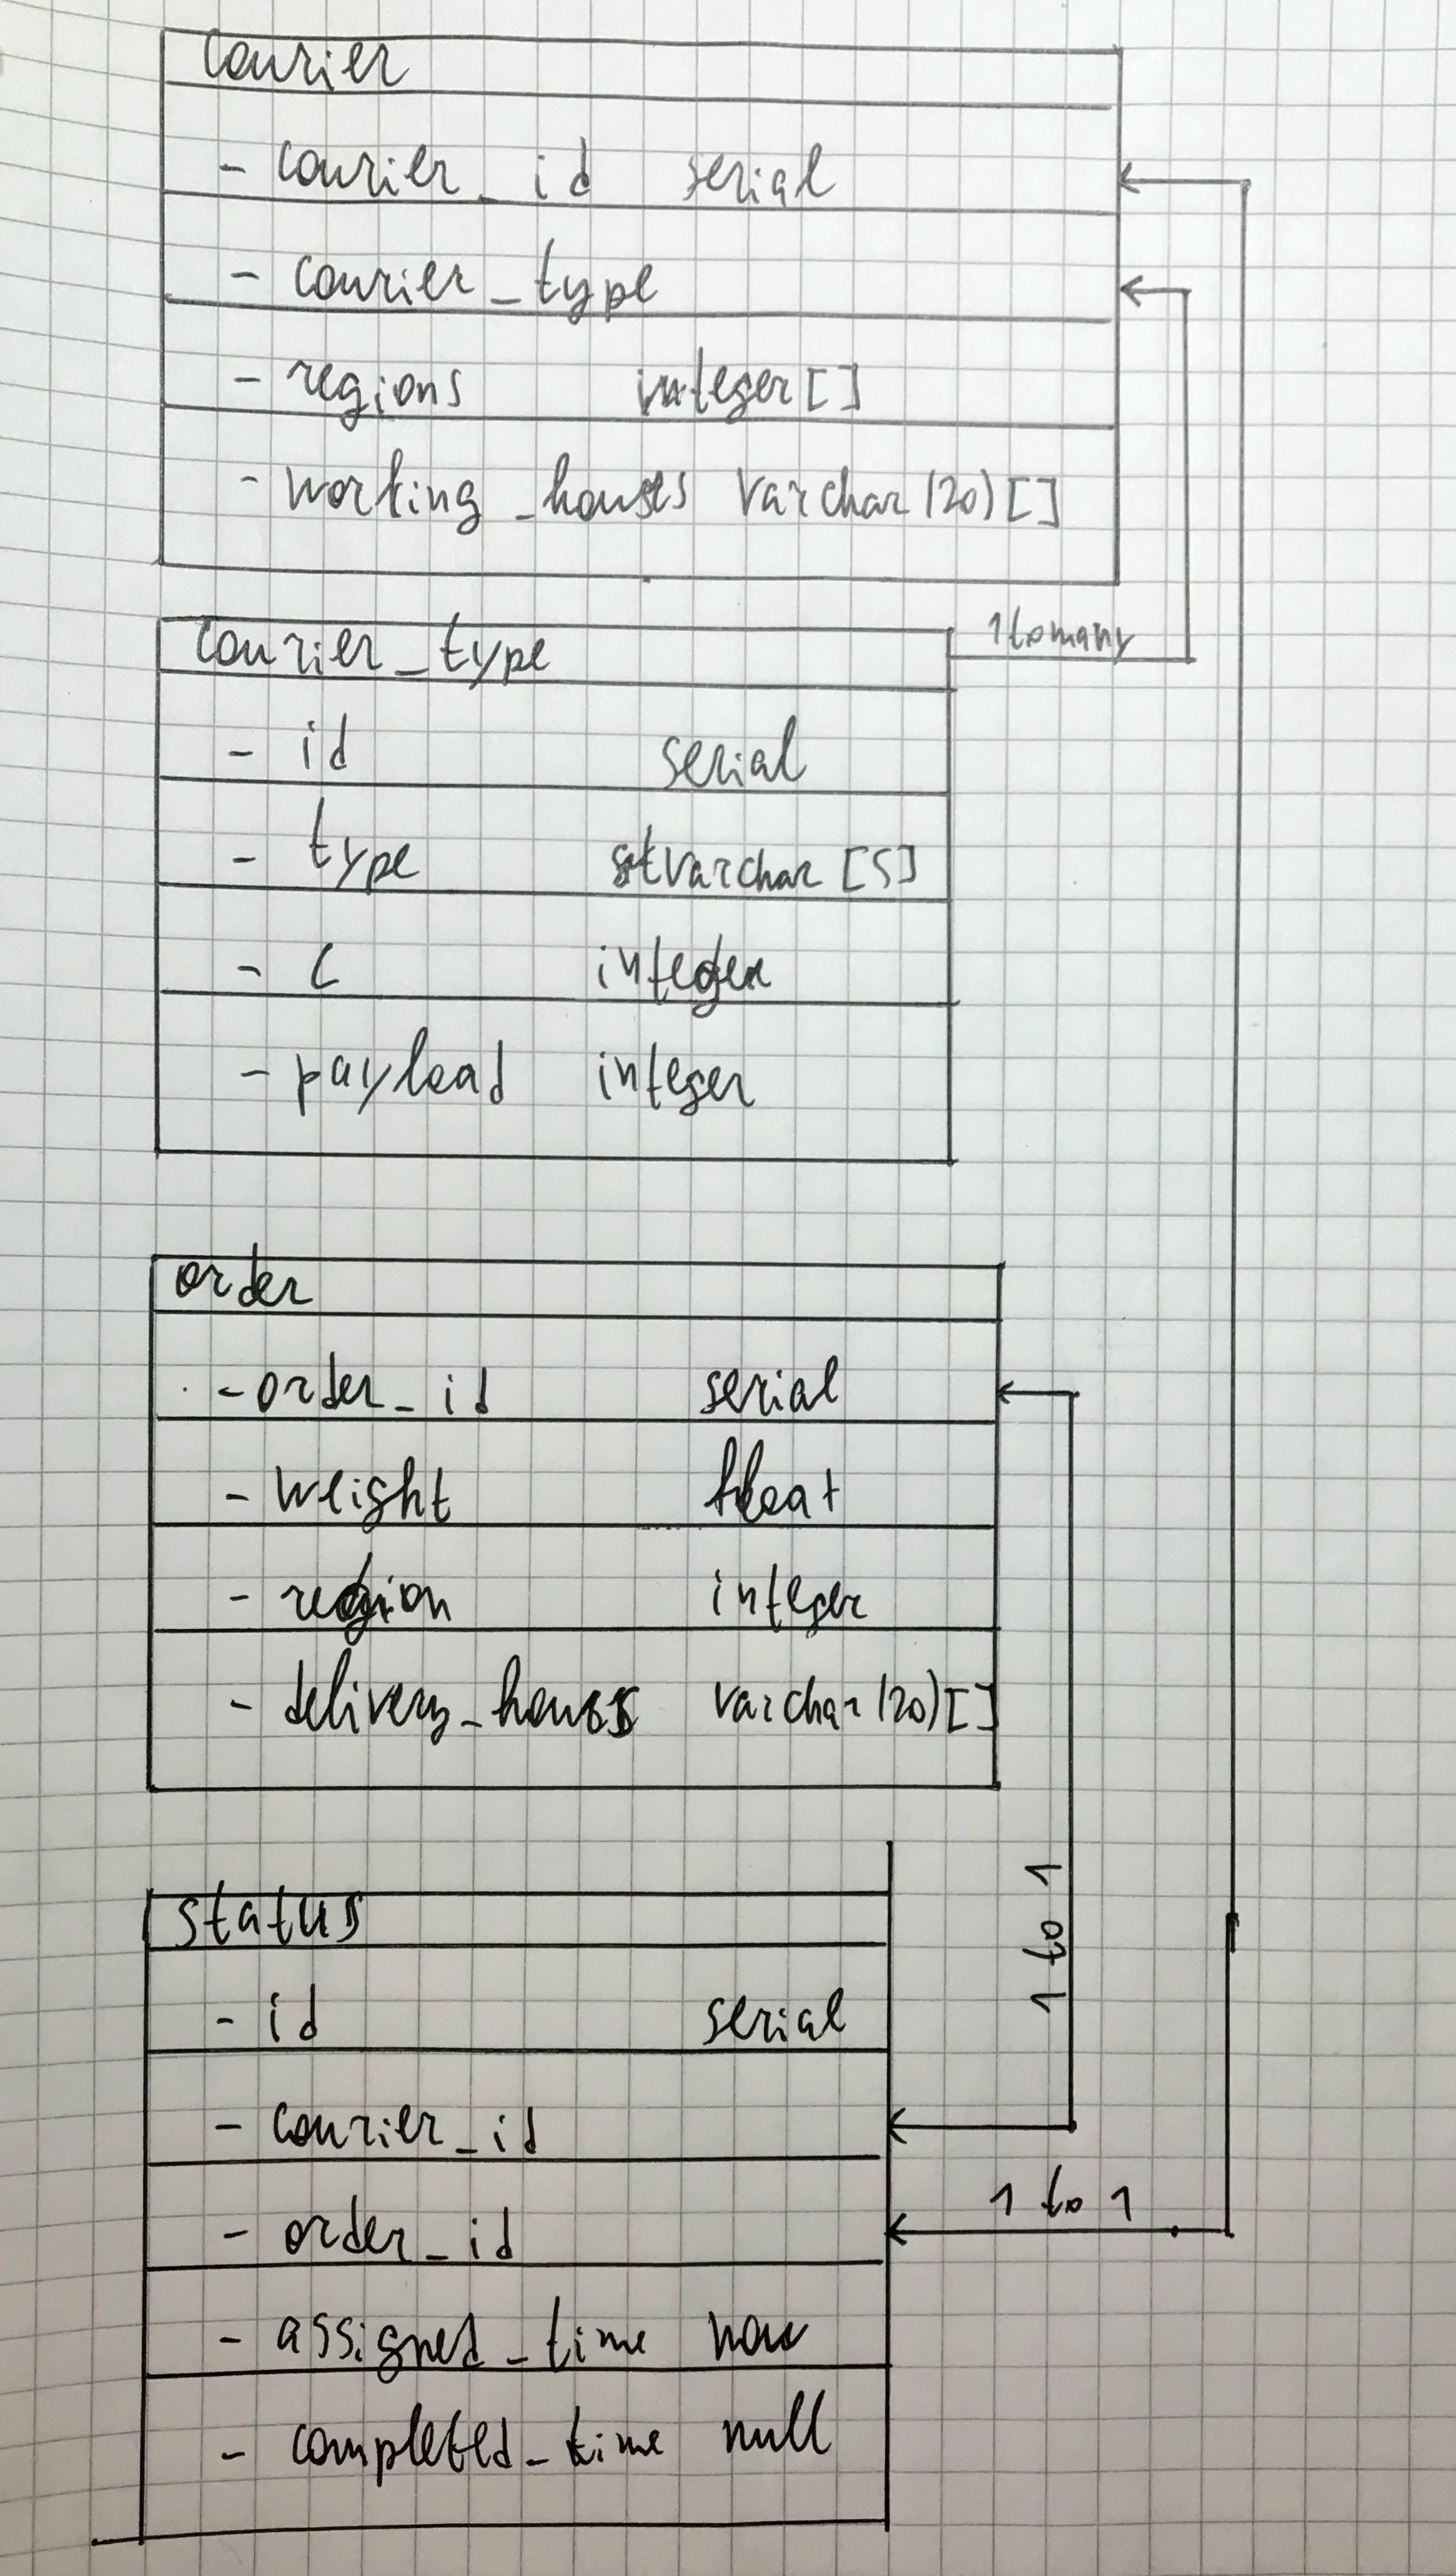 courier
- courier_id serial
- courier_type
- regions integer[]
- working_houses varchar(20)[]
courier_type
1 to many
- id serial
- type varchar[5]
- C integer
- payload integer
order
- order_id serial
- weight float
- region integer
- delivery_houses varchar(20)[]
1 to 1
status
- id serial
- courier_id
- order_id
1 to 1
- assigned_time now
- completed_time null